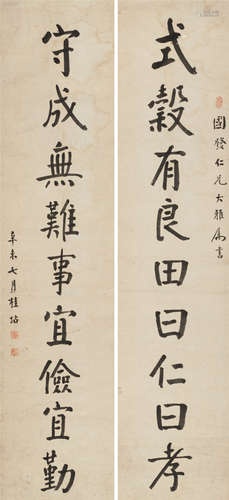 式穀有良田曰仁曰孝
國發仁兄大雅屬書
守成無難事宜儉宜勤
辛未七月桂坫